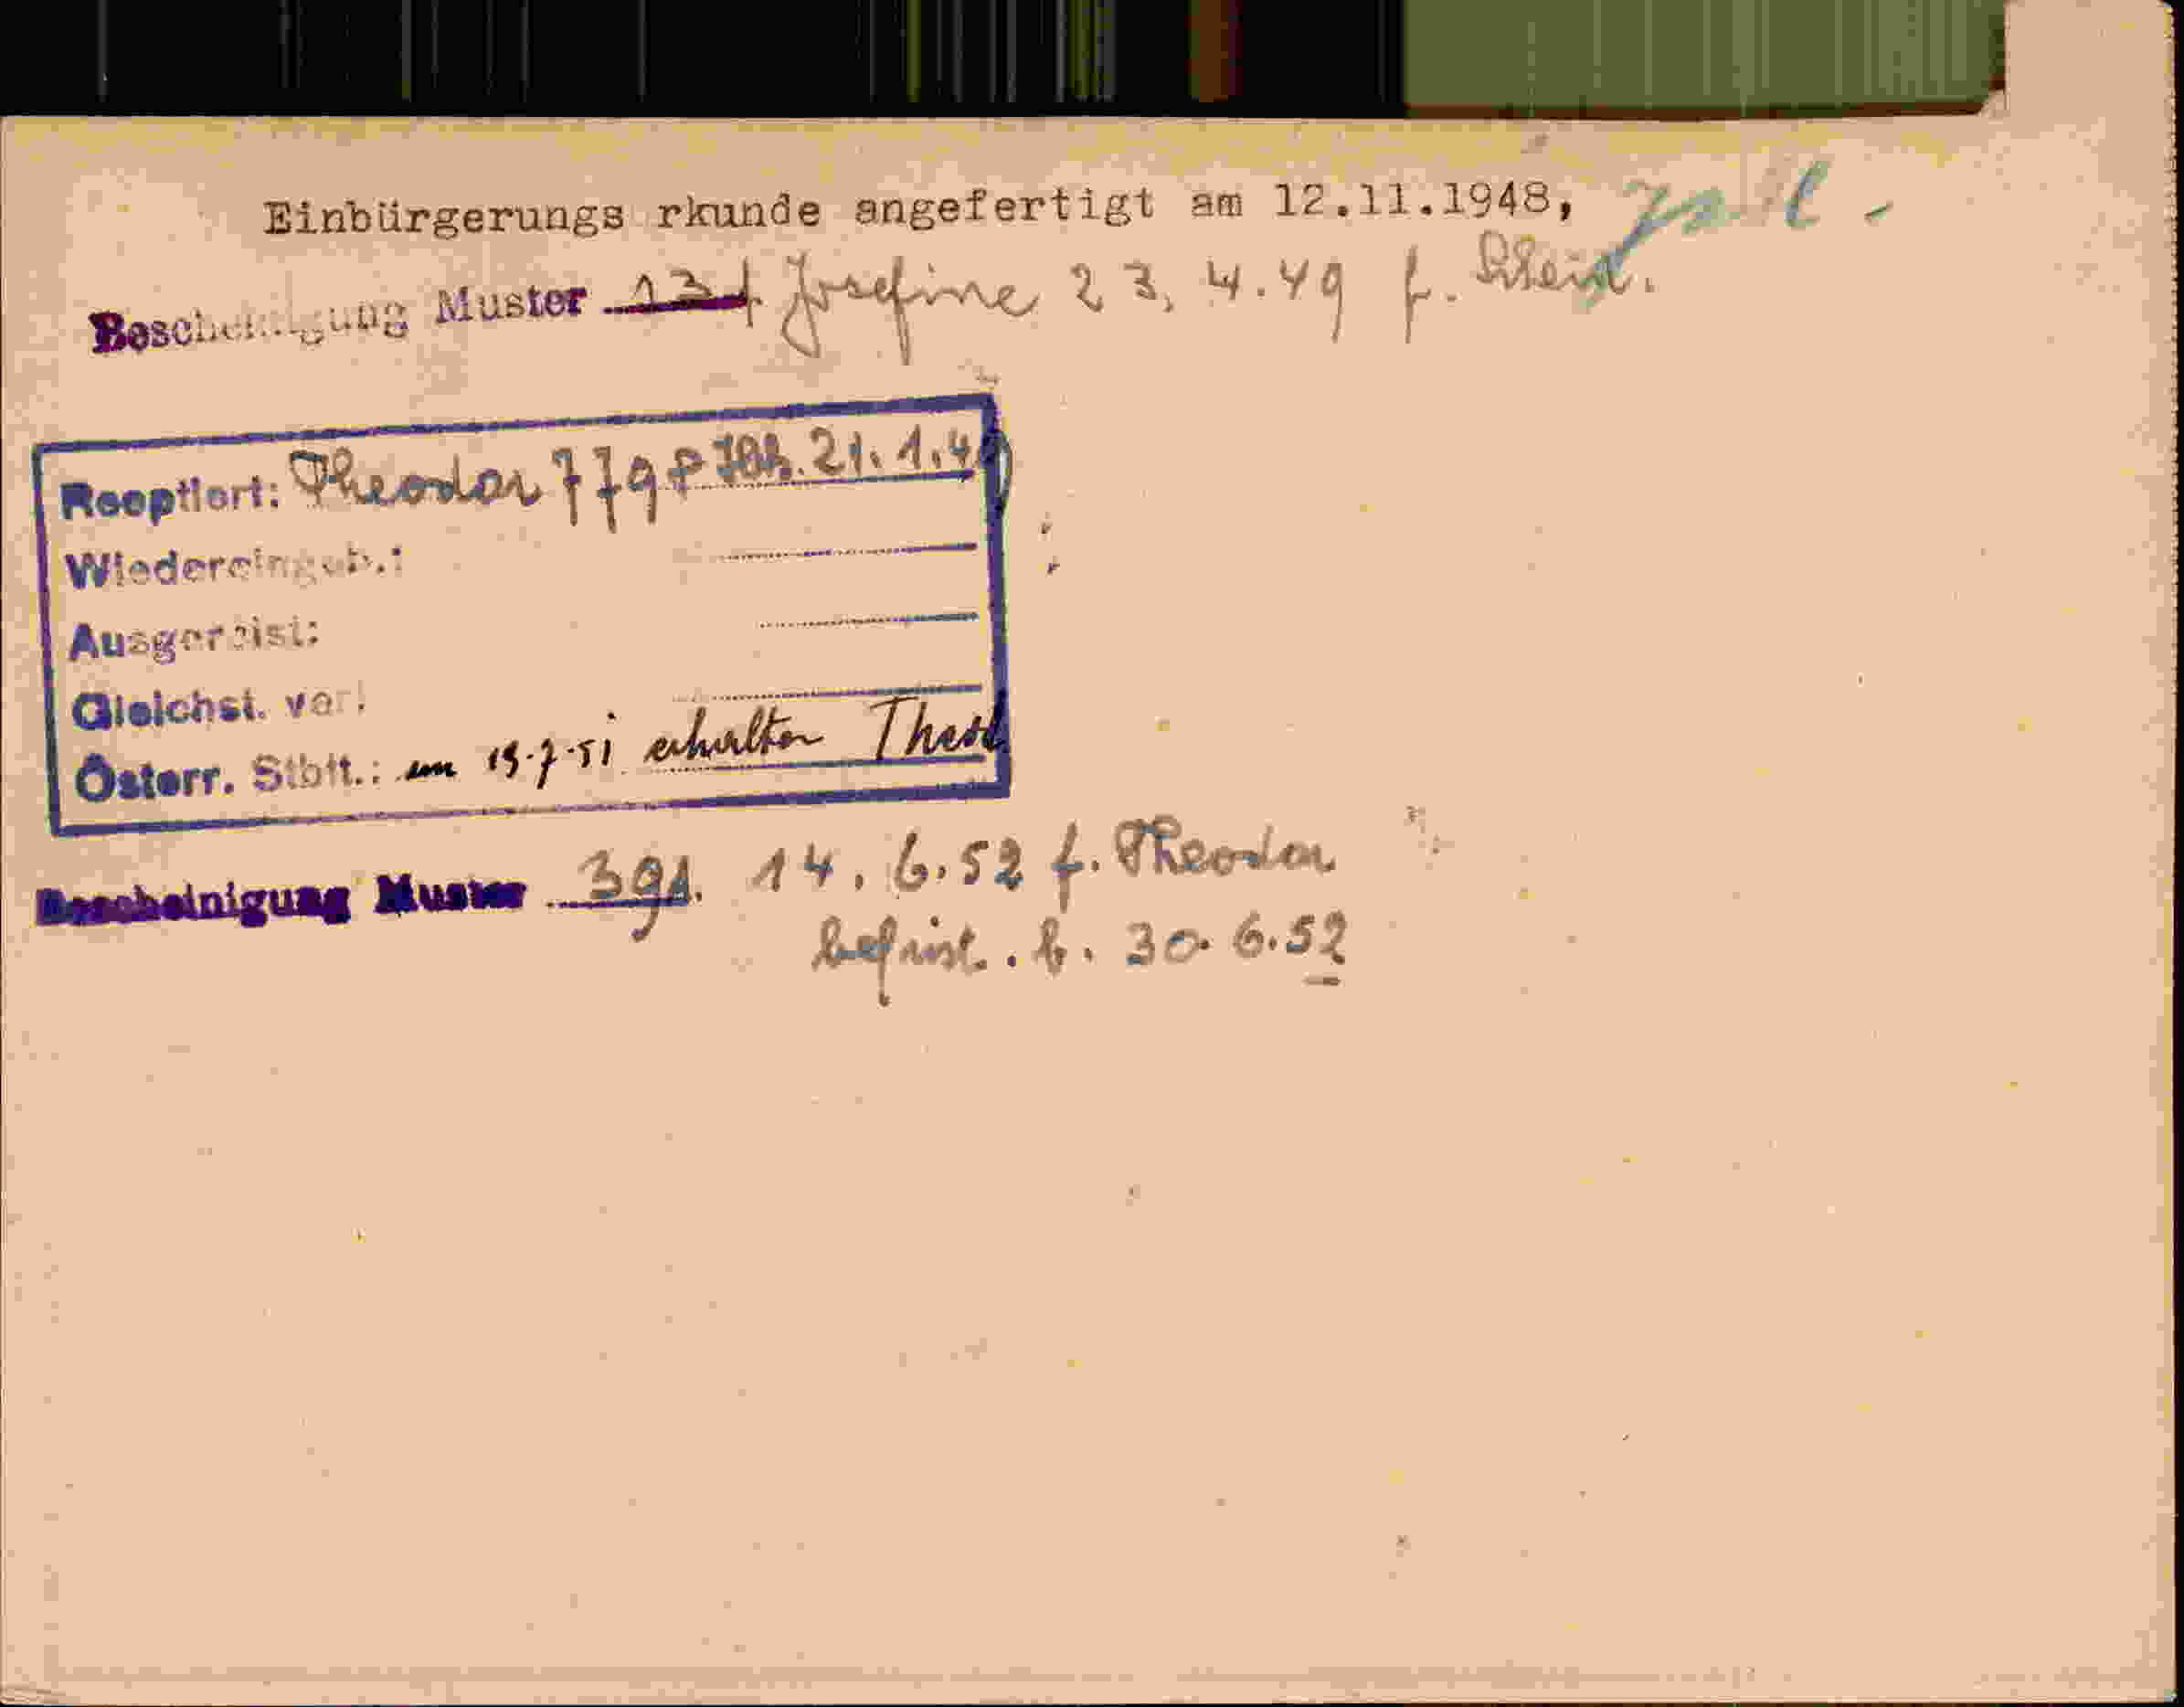 Einbürgerungs rkunde angefertigt am 12.11.1948,
Bescheinigung Muster 13 f Josefine 23.4.49 f.
Reoptiert: Theodor 21.1.49
Wiedereingeb.:
Ausgereist:
Gleichst. ver.:
Österr. Stbft.: am 19.7.51 erhalten
Bescheinigung Muster 39 14.6.52 f. Theodor
befrist. b. 30.6.52